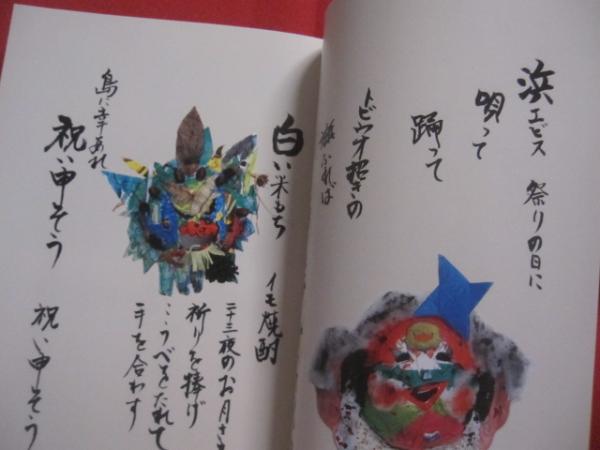 浜エビス 祭りの日に
唄って
踊って
トビウオ招きの
旗ふれば
白い米もち イモ焼酎
二十三夜のお月さま
祈りを捧げ
こうべをたれて
手を合わす
島に幸あれ
祝い申そう
祝い申そう